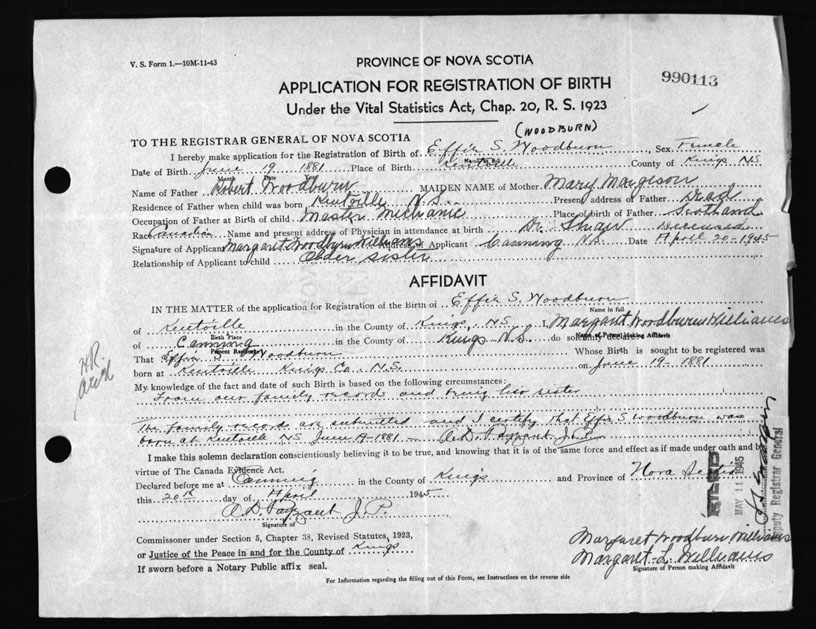 V. S. Form 1.—10M-11-43
PROVINCE OF NOVA SCOTIA
990113
APPLICATION FOR REGISTRATION OF BIRTH
Under the Vital Statistics Act, Chap. 20, R. S. 1923
(WOODBURN)
TO THE REGISTRAR GENERAL OF NOVA SCOTIA
I hereby make application for the Registration of Birth of Effie S. Woodburn Sex Female
Date of Birth June 19 1881 Place of Birth Kentville County of Kings NS
Month Date Year
Name of Father Robert Woodburn MAIDEN NAME of Mother Mary Margeson
Residence of Father when child was born Kentville N.S. Present address of Father Dead
Occupation of Father at Birth of child Master Place of birth of Father Scotland
Race Canadian Name and present address of Physician in attendance at birth Dr. Shaw Deceased
Signature of Applicant Margaret Woodburn Williams Address of Applicant Canning N.S. Date April 20-1945
Relationship of Applicant to child Older sister
AFFIDAVIT
IN THE MATTER of the application for Registration of the Birth of Effie S. Woodburn
Name in full
of Kentville in the County of Kings, N.S. I, Margaret Woodburn Williams
Birth Place
Name of Person making Affidavit
of Canning in the County of Kings N.S. do solemnly declare:
Present Residence
That Effie S. Woodburn Whose Birth is sought to be registered was
born at Kentville Kings Co. N.S. on June 19-1881
My knowledge of the fact and date of such Birth is based on the following circumstances:
From our family records and being her sister
The family records are submitted and I certify that Effie S Woodburn was
born at Kentville NS June 19-1881
I make this solemn declaration conscientiously believing it to be true, and knowing that it is of the same force and effect as if made under oath and by
virtue of The Canada Evidence Act.
Declared before me at Canning in the County of Kings and Province of Nova Scotia
this 20th day of April 1945
J. P.
Signature of
Commissioner under Section 5, Chapter 38, Revised Statutes, 1923,
or Justice of the Peace in and for the County of Kings
If sworn before a Notary Public affix seal.
Margaret Woodburn Williams
Margaret L. Williams
Signature of Person making Affidavit
For Information regarding the filling out of this Form, see Instructions on the reverse side
FILED
MAY 11 1945
Deputy Registrar General